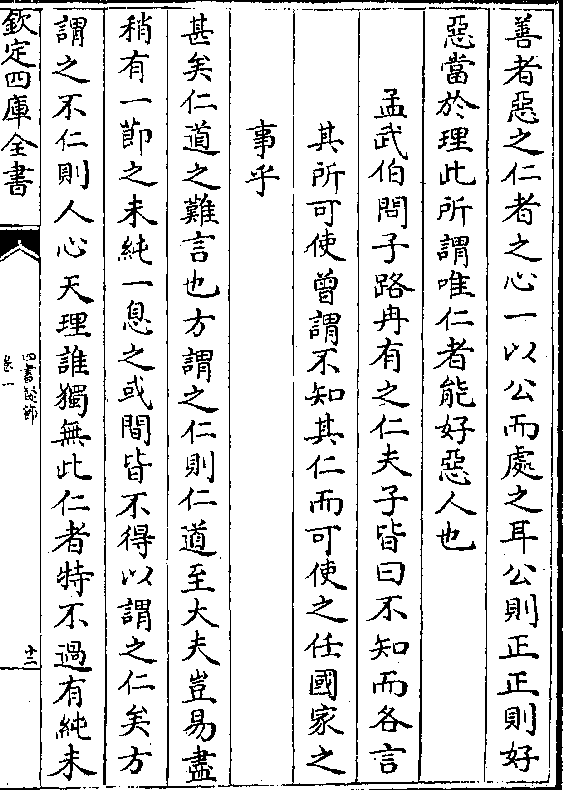 善者惡之仁者之心一以公而處之耳公則正正則好
惡當於理此所謂唯仁者能好惡人也
孟武伯問子路冉有之仁夫子皆曰不知而各言
其所可使曾謂不知其仁而可使之任國家之
事乎
甚矣仁道之難言也方謂之仁則仁道至大夫豈易盡
稍有一節之未純一息之或間皆不得以謂之仁矣方
謂之不仁則人心天理誰獨無此仁者特不過有純未
欽定四庫全書
四書疑節
卷一
十二